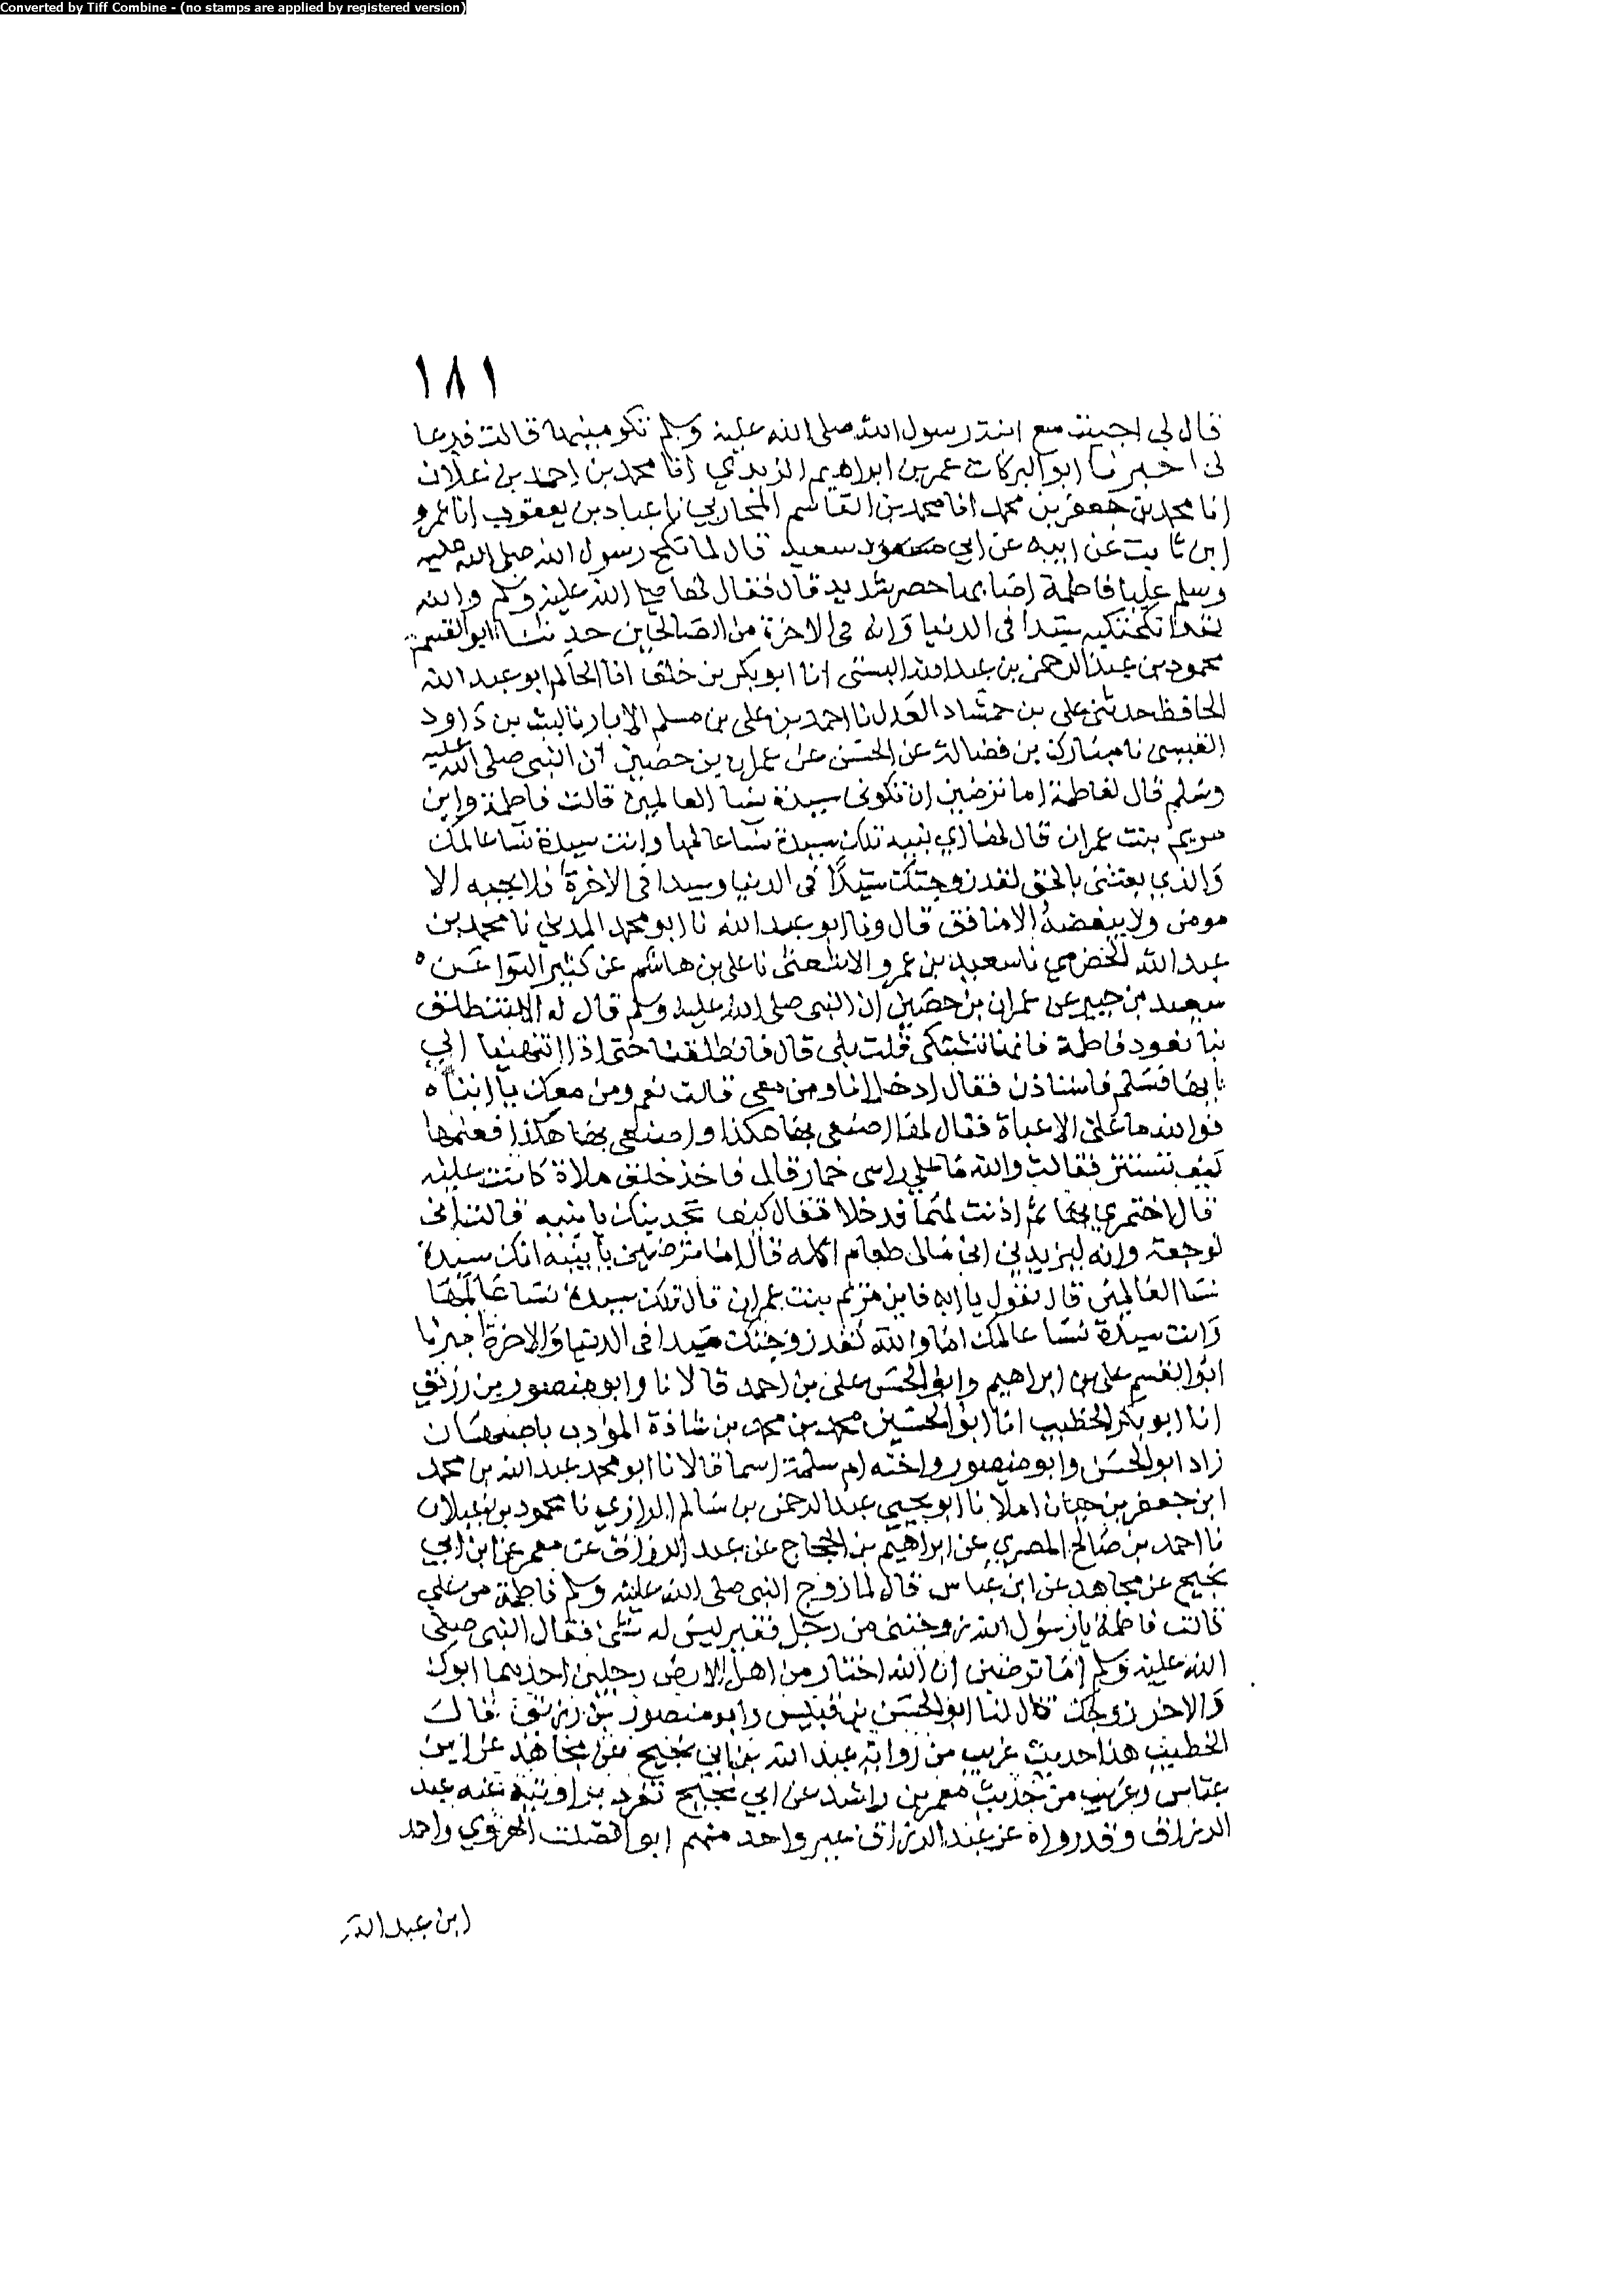 Converted by Tiff Combine - (no stamps are applied by registered version)
١٨١
قال لي اجيت مع ابنة رسول الله صلى الله عليه وسلم تكرمينها قالت فدعا
لي اخبرنا ابو البركات عمر بن ابراهيم الزيدي انا محمد بن احمد بن علان
انا محمد بن جعفر بن محمد انا محمد بن القاسم المحاربي نا عباد بن يعقوب انا عمرو
ابن ثابت عن ابيه عن ابي سعيد قال لما نكح رسول الله صلى الله عليه
وسلم عليا فاطمة اصابها حصر شديد قال فقال لها صلى الله عليه وسلم والله
لقد انكحتكيه سيدا في الدنيا وانه في الاخرة من الصالحين حدثنا ابو القسم
محمود بن عبد الرحمن بن عبد الله البستي انا ابو بكر بن خلف انا الحاكم ابو عبد الله
الحافظ حدثني علي بن حمشاد العدل نا احمد بن علي بن مسلم الابار نا ليث بن داود
القيسي نا مبارك بن فضالة عن الحسن عن عمران بن حصين ان النبي صلى الله عليه
وسلم قال لفاطمة اما ترضين ان تكوني سيدة نسا العالمين قالت فاطمة واين
مريم بنت عمران قال لها اي بنيه تلك سيدة نسا عالمها وانت سيدة نسا عالمك
والذي بعثني بالحق لقد زوجتك سيدا في الدنيا وسيدا في الاخرة فلا يحبه الا
مومن ولا يبغضه الا منافق قال ونا ابو عبد الله نا ابو محمد المدني نا محمد بن
عبد الله الحضرمي نا سعيد بن عمرو الاشعثي نا علي بن هاشم عن كثير النوا عن
سعيد بن جبير عن عمران بن حصين ان النبي صلى الله عليه وسلم قال له الا تنطلق
بنا نعود فاطمة فانها تشتكي قلت بلى قال فانطلقنا حتى اذا انتهينا الي
بابها فسلم فاستاذن فقال ادخل انا ومن معي قالت نعم ومن معك يا ابتاه
فوالله ما علي الا عباة فقال لها اصنعي بها هكذا واصنعي بها هكذا فعلمها
كيف تستتر فقالت والله ما علي راسي خمار قال فاخذ خلق ملاة كانت عليه
فقال اختمري بها ثم اذنت لهما فدخلا فقال كيف تجدينك يا بنيه قالت اني
لوجعة وانه ليزيدني اني مالى طعام اكله قال اما ترضين يا بنيه انك سيدة
نسا العالمين قال تقول يا ابه فاين مريم بنت عمران قال تلك سيدة نسا عالمها
وانت سيدة نسا عالمك اما والله لقد زوجتك سيدا في الدنيا والاخرة اخبرنا
ابو القسم علي بن ابراهيم وابو الحسن علي بن احمد قالا نا وابو منصور بن زريق
انا ابو بكر الخطيب انا ابو الحسين محمد بن محمد بن شاذة المؤدب باصبهان
زاد ابو الحسن وابو منصور واخته ام سلمة اسما قالا نا ابو محمد عبد الله بن محمد
ابن جعفر بن حيان املا نا ابو يحيي عبد الرحمن بن سالم الرازي نا محمود بن غيلان
نا احمد بن صالح المصري عن ابراهيم بن الحجاج عن عبد الرزاق عن معمر عن ابن ابي
نجيح عن مجاهد عن ابن عباس قال لما زوج النبي صلى الله عليه وسلم فاطمة من علي
قالت فاطمة يا رسول الله زوجتني من رجل فقير ليس له شئ فقال النبي صلى
الله عليه وسلم اما ترضين ان الله اختار من اهل الارض رجلين احدهما ابوك
والاخر زوجك قال لنا ابو الحسن بن قبيس وابو منصور بن زريق قال
الخطيب هذا حديث غريب من رواية عبد الله بن ابي نجيح عن مجاهد عن ابن
عباس وغريب من حديث معمر بن راشد عن ابي نجيح تفرد بروايته عنه عبد
الرزاق وقد رواه عن عبد الرزاق غير واحد منهم ابو الصلت الهروي واحمد
ابن عبد الله